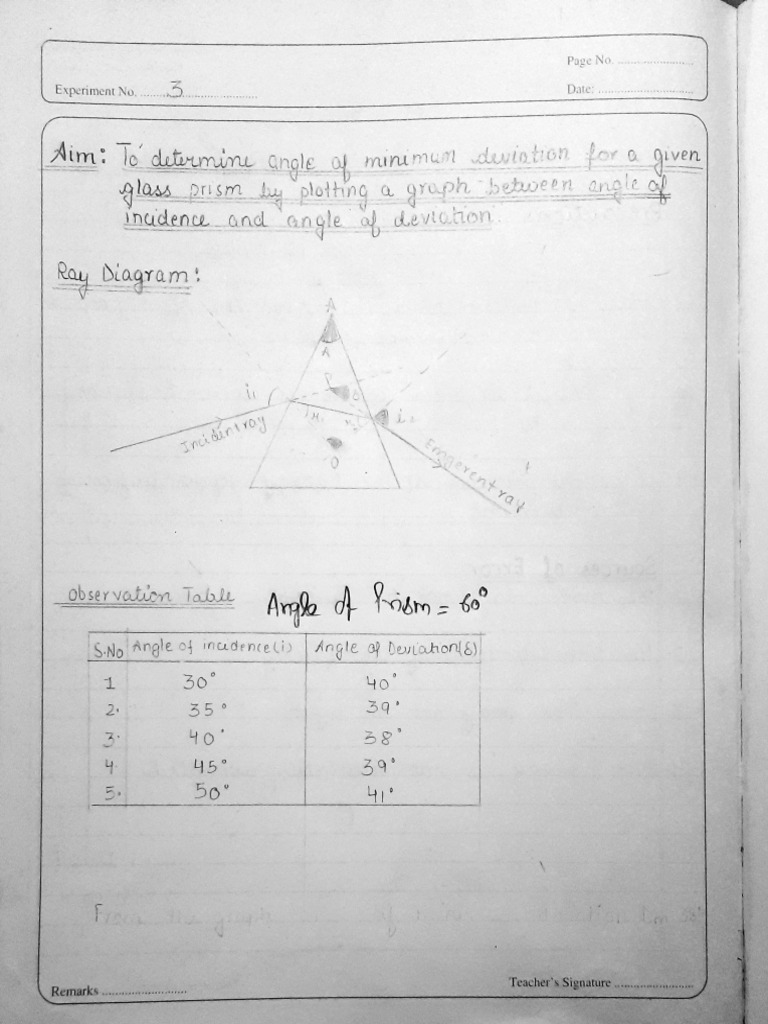 Page No. ....................
Experiment No. ........3....................
Date: .........................
Aim: To determine angle of minimum deviation for a given
glass prism by plotting a graph between angle of
incidence and angle of deviation.
Ray Diagram:
A
A
P
i₁
i₂
Incident ray
O
Emgerent ray
Observation Table Angle of Prism = 60°
S.No Angle of incidence(i) Angle of Deviation(δ)
1 30° 40°
2. 35° 39°
3. 40° 38°
4 45° 39°
5. 50° 41°
Remarks ......................
Teacher's Signature ....................